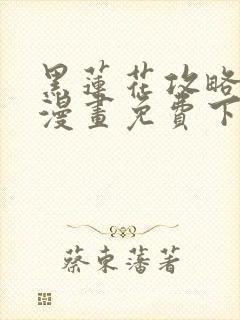 黑蓮花攻略
漫畫免費下
蔡東藩著